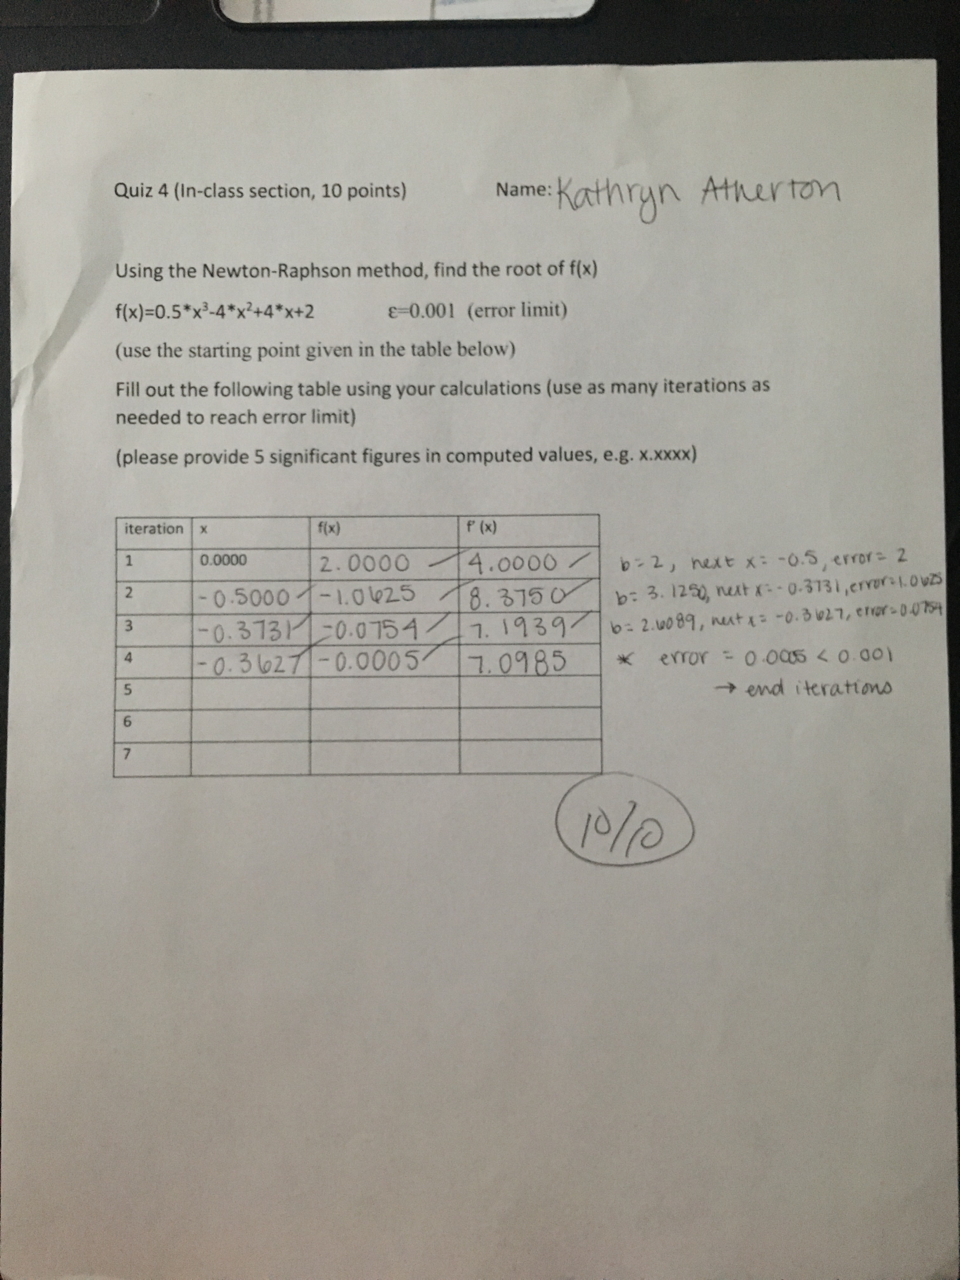 Quiz 4 (In-class section, 10 points) Name: Kathryn Atherton
Using the Newton-Raphson method, find the root of f(x)
f(x)=0.5*x³-4*x²+4*x+2 ε=0.001 (error limit)
(use the starting point given in the table below)
Fill out the following table using your calculations (use as many iterations as
needed to reach error limit)
(please provide 5 significant figures in computed values, e.g. x.xxxx)
iteration x f(x) f' (x)
1 0.0000 2.0000 4.0000 b=2, next x=-0.5, error=2
2 -0.5000 -1.0625 8.3750 b=3.1250, next x=-0.3731, error=1.0625
3 -0.3731 -0.0754 7.1939 b=2.6089, next x=-0.3627, error=0.0754
4 -0.3627 -0.0005 7.0985 * error = 0.0005 < 0.001
→ end iterations
5
6
7
10/10